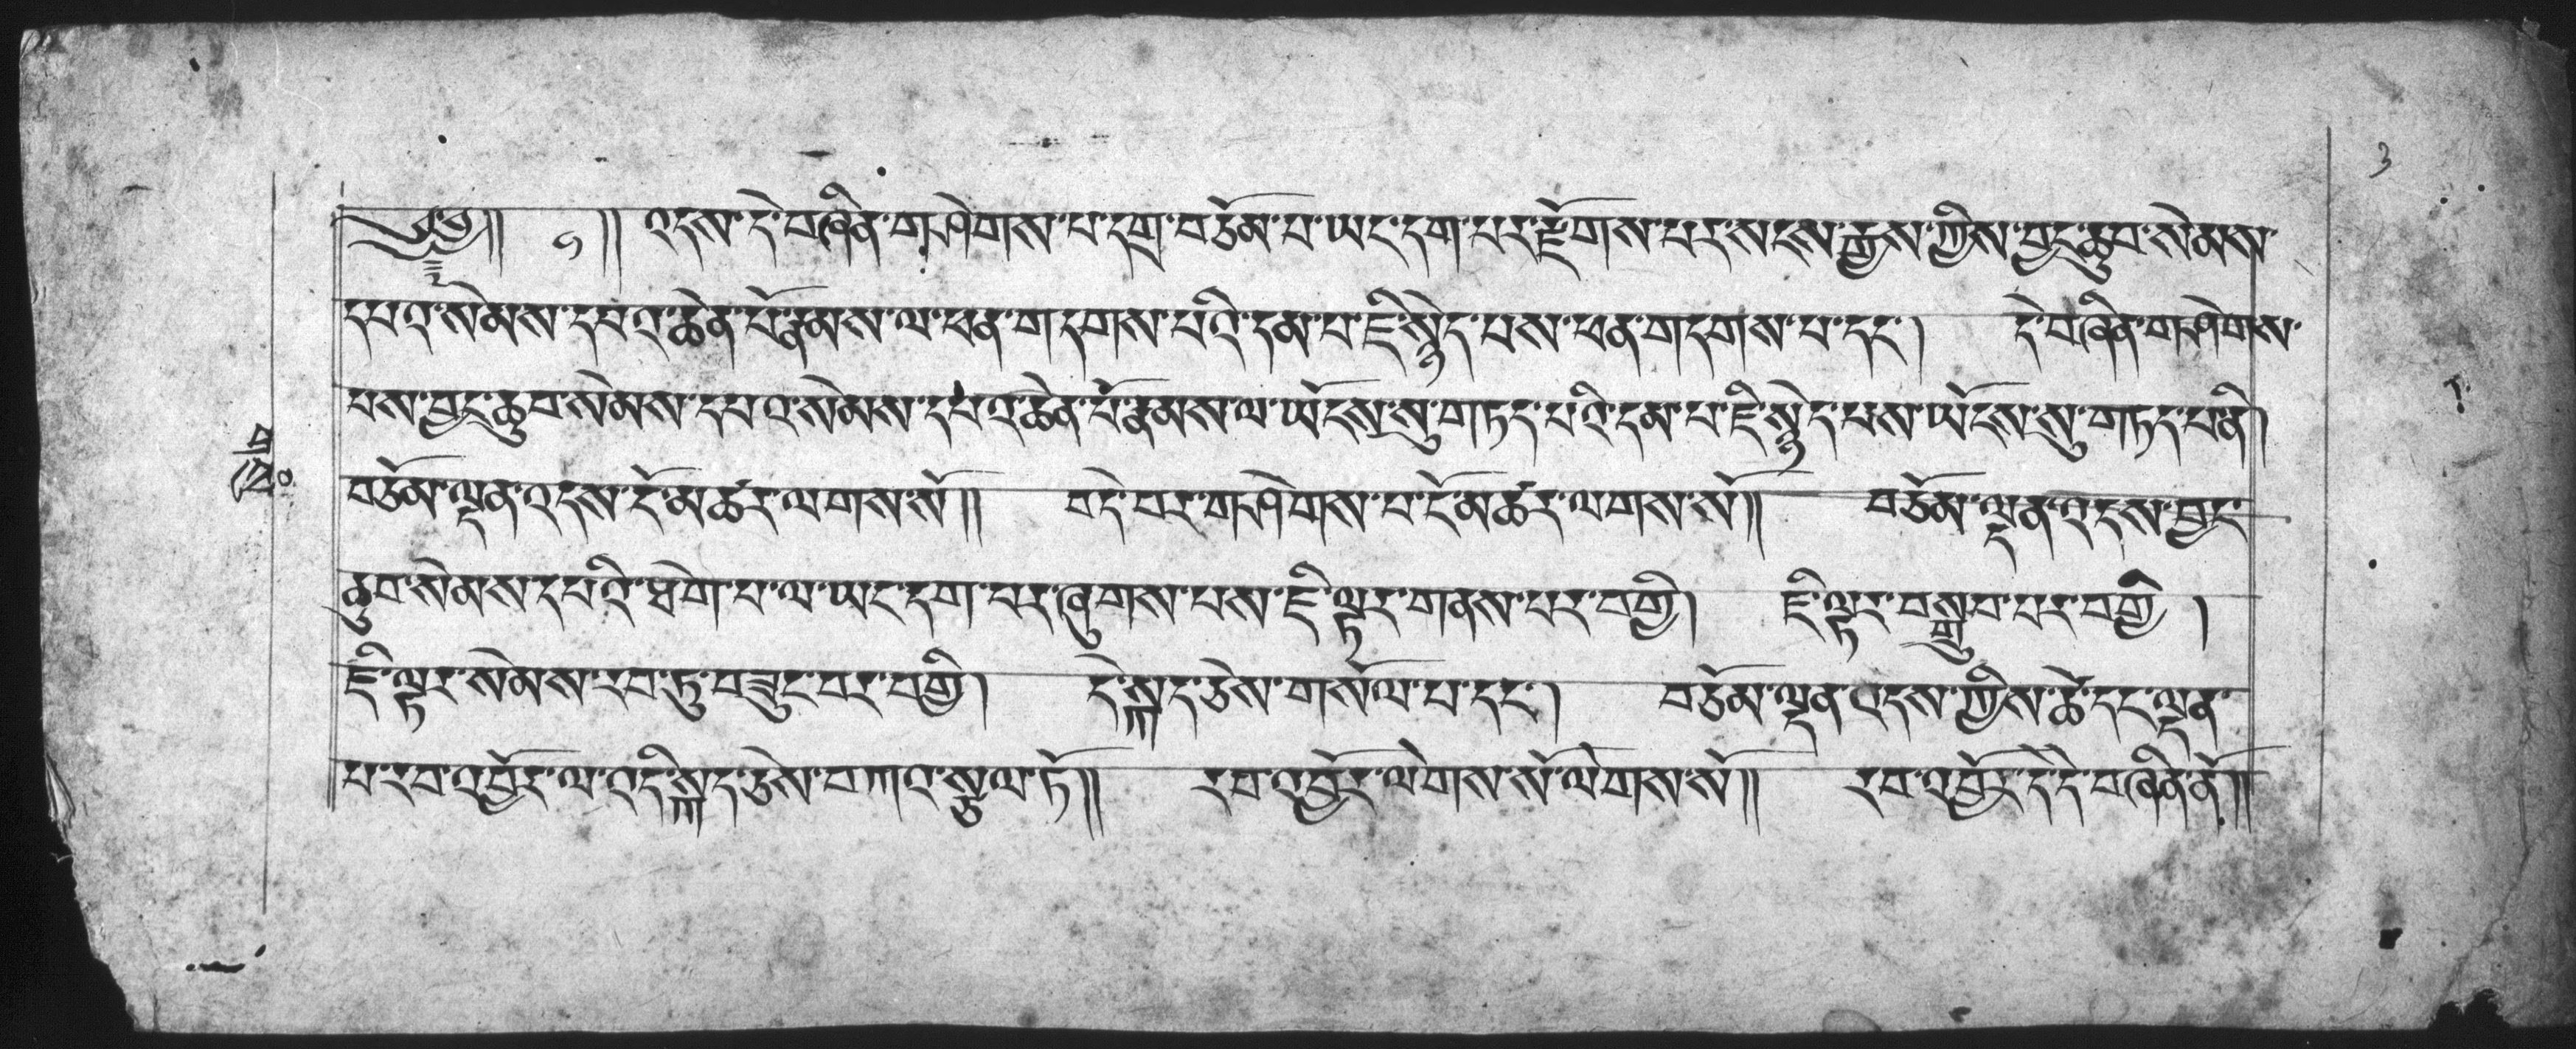 ༄༅།། ༑ །། འདས་དེ་བཞིན་གཤེགས་པ་དགྲ་བཅོམ་པ་ཡང་དག་པར་རྫོགས་པར་སངས་རྒྱས་ཀྱིས་བྱང་ཆུབ་སེམས་
དཔའ་སེམས་དཔའ་ཆེན་པོ་རྣམས་ལ་ཕན་གདགས་པའི་དམ་པ་ཇི་སྙེད་པས་ཕན་གདགས་པ་དང་། དེ་བཞིན་གཤེགས་
པས་བྱང་ཆུབ་སེམས་དཔའ་སེམས་དཔའ་ཆེན་པོ་རྣམས་ལ་ཡོངསུ་གཏད་པའི་དམ་པ་ཇི་སྙེད་པས་ཡོངས་སུ་གཏད་པནི།
བཅོམ་ལྡན་འདས་ངོ་མཚར་ལགས་སོ།། བདེ་བར་གཤེགས་པ་ངོ་མཚར་ལགས་སོ།། བཅོམ་ལྡན་འདས་བྱང་
ཆུབ་སེམས་དཔའི་ཐེག་པ་ལ་ཡང་དག་པར་ཞུགས་པས་ཇི་ལྟར་གནས་པར་བགྱི། ཇི་ལྟར་བསྒྲུབ་པར་བགྱི།
ཇི་ལྟར་སེམས་རབ་ཏུ་བཟུང་བར་བགྱི། དེ་སྐད་ཅེས་གསོལ་པ་དང་། བཅོམ་ལྡན་འདས་ཀྱིས་ཚེ་དང་ལྡན་
པ་རབ་འབྱོར་ལ་འདི་སྐད་ཅེས་བཀའ་སྩལ་ཏོ།། རབ་འབྱོར་ལེགས་སོ་ལེགས་སོ།། རབ་འབྱོར་དེ་དེ་བཞིན་ནོ།།
3